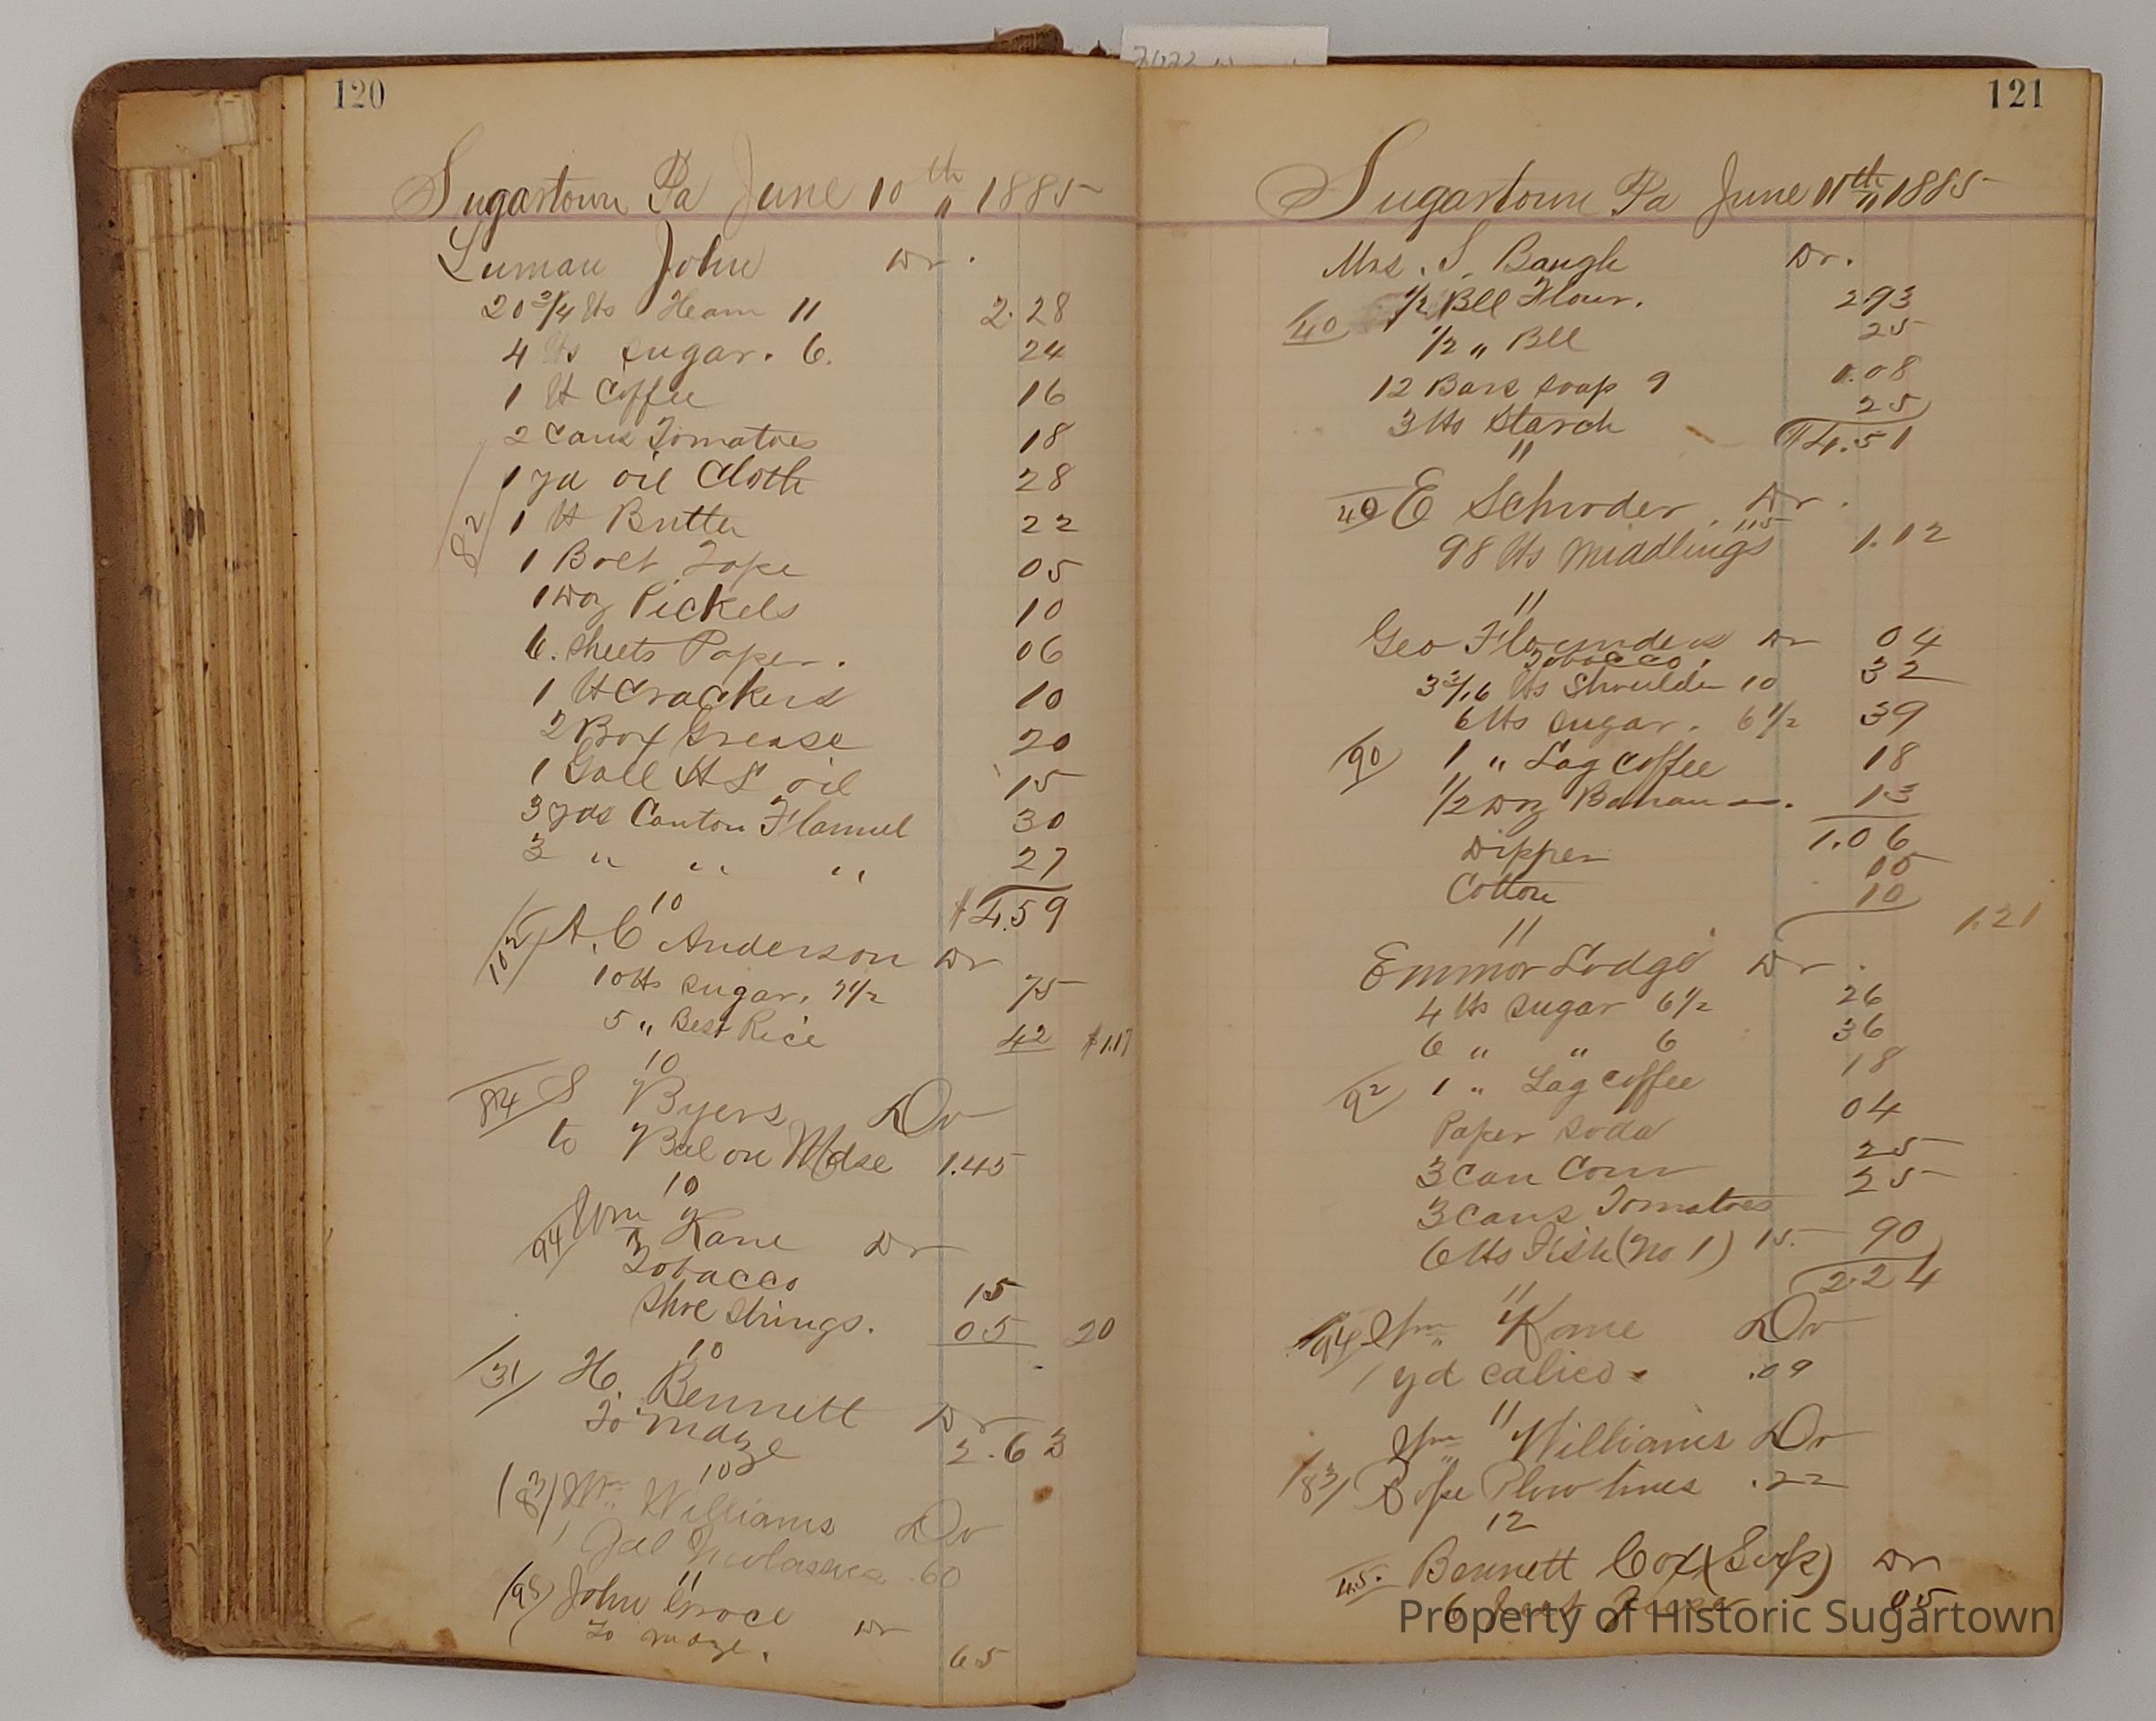 120
Sugartown Pa June 10th 1885
Luman John Dr.
20 3/4 lbs Ham 11 2.28
4 lbs sugar. 6. 24
1 lb Coffee 16
2 Cans Tomatoes 18
1 yd oil Cloth 28
82 1 lb Butter 22
1 Bolt Tape 05
1 Doz Pickels 10
6. sheets Paper. 06
1 lb Crackers 10
2 Box Grease 20
1 Gall H L oil 15
3 yds Canton Flannel 30
3 " " " 27
$4.59
10
102 A. C Anderson Dr
10 lbs sugar. 7 1/2 75
5 " Best Rice 42 $1.17
10
84 S Byers Dr
to Bal on Mdse 1.45
10
94 Wm Kane Dr
Tobacco 15
Shoe Strings. 05 20
10
31 H. Bennett Dr
To mdze 2.63
10
83 Wm Williams Dr
1 Gal Molasses .60
11
John Grace Dr
To mdze. 65
121
Sugartown Pa June 11th 1885
Mrs. S. Baugh Dr.
1/2 Bll Flour. 293
40 1/2 " Bll 25
12 Bars soap 9 1.08
3 lbs Starch 25
$4.51
11
40 E Schroder. Dr.
98 lbs Middlings 115 1.12
11
Geo Flounders Dr
Tobacco. 04
3 3/16 lbs Shoulder 10 32
6 lbs sugar. 6 1/2 39
90 1 " Lag Coffee 18
1/2 Doz Bananas. 13
1.06
Dipper 05
Cotton 10
1.21
11
Emmor Lodge Dr.
4 lbs sugar 6 1/2 26
6 " " 6 36
92 1 " Lag Coffee 18
Paper Soda 04
3 Can Corn 25
3 Cans Tomatoes 25
6 lbs Fish (No 1) 15. 90
2.24
11
94 Wm Kane Dr
1 yd calico .09
11
Wm Williams Dr
83 Rope Plow lines .22
12
45. Bennett Cox (Serfs) Dr
6 05
Property of Historic Sugartown